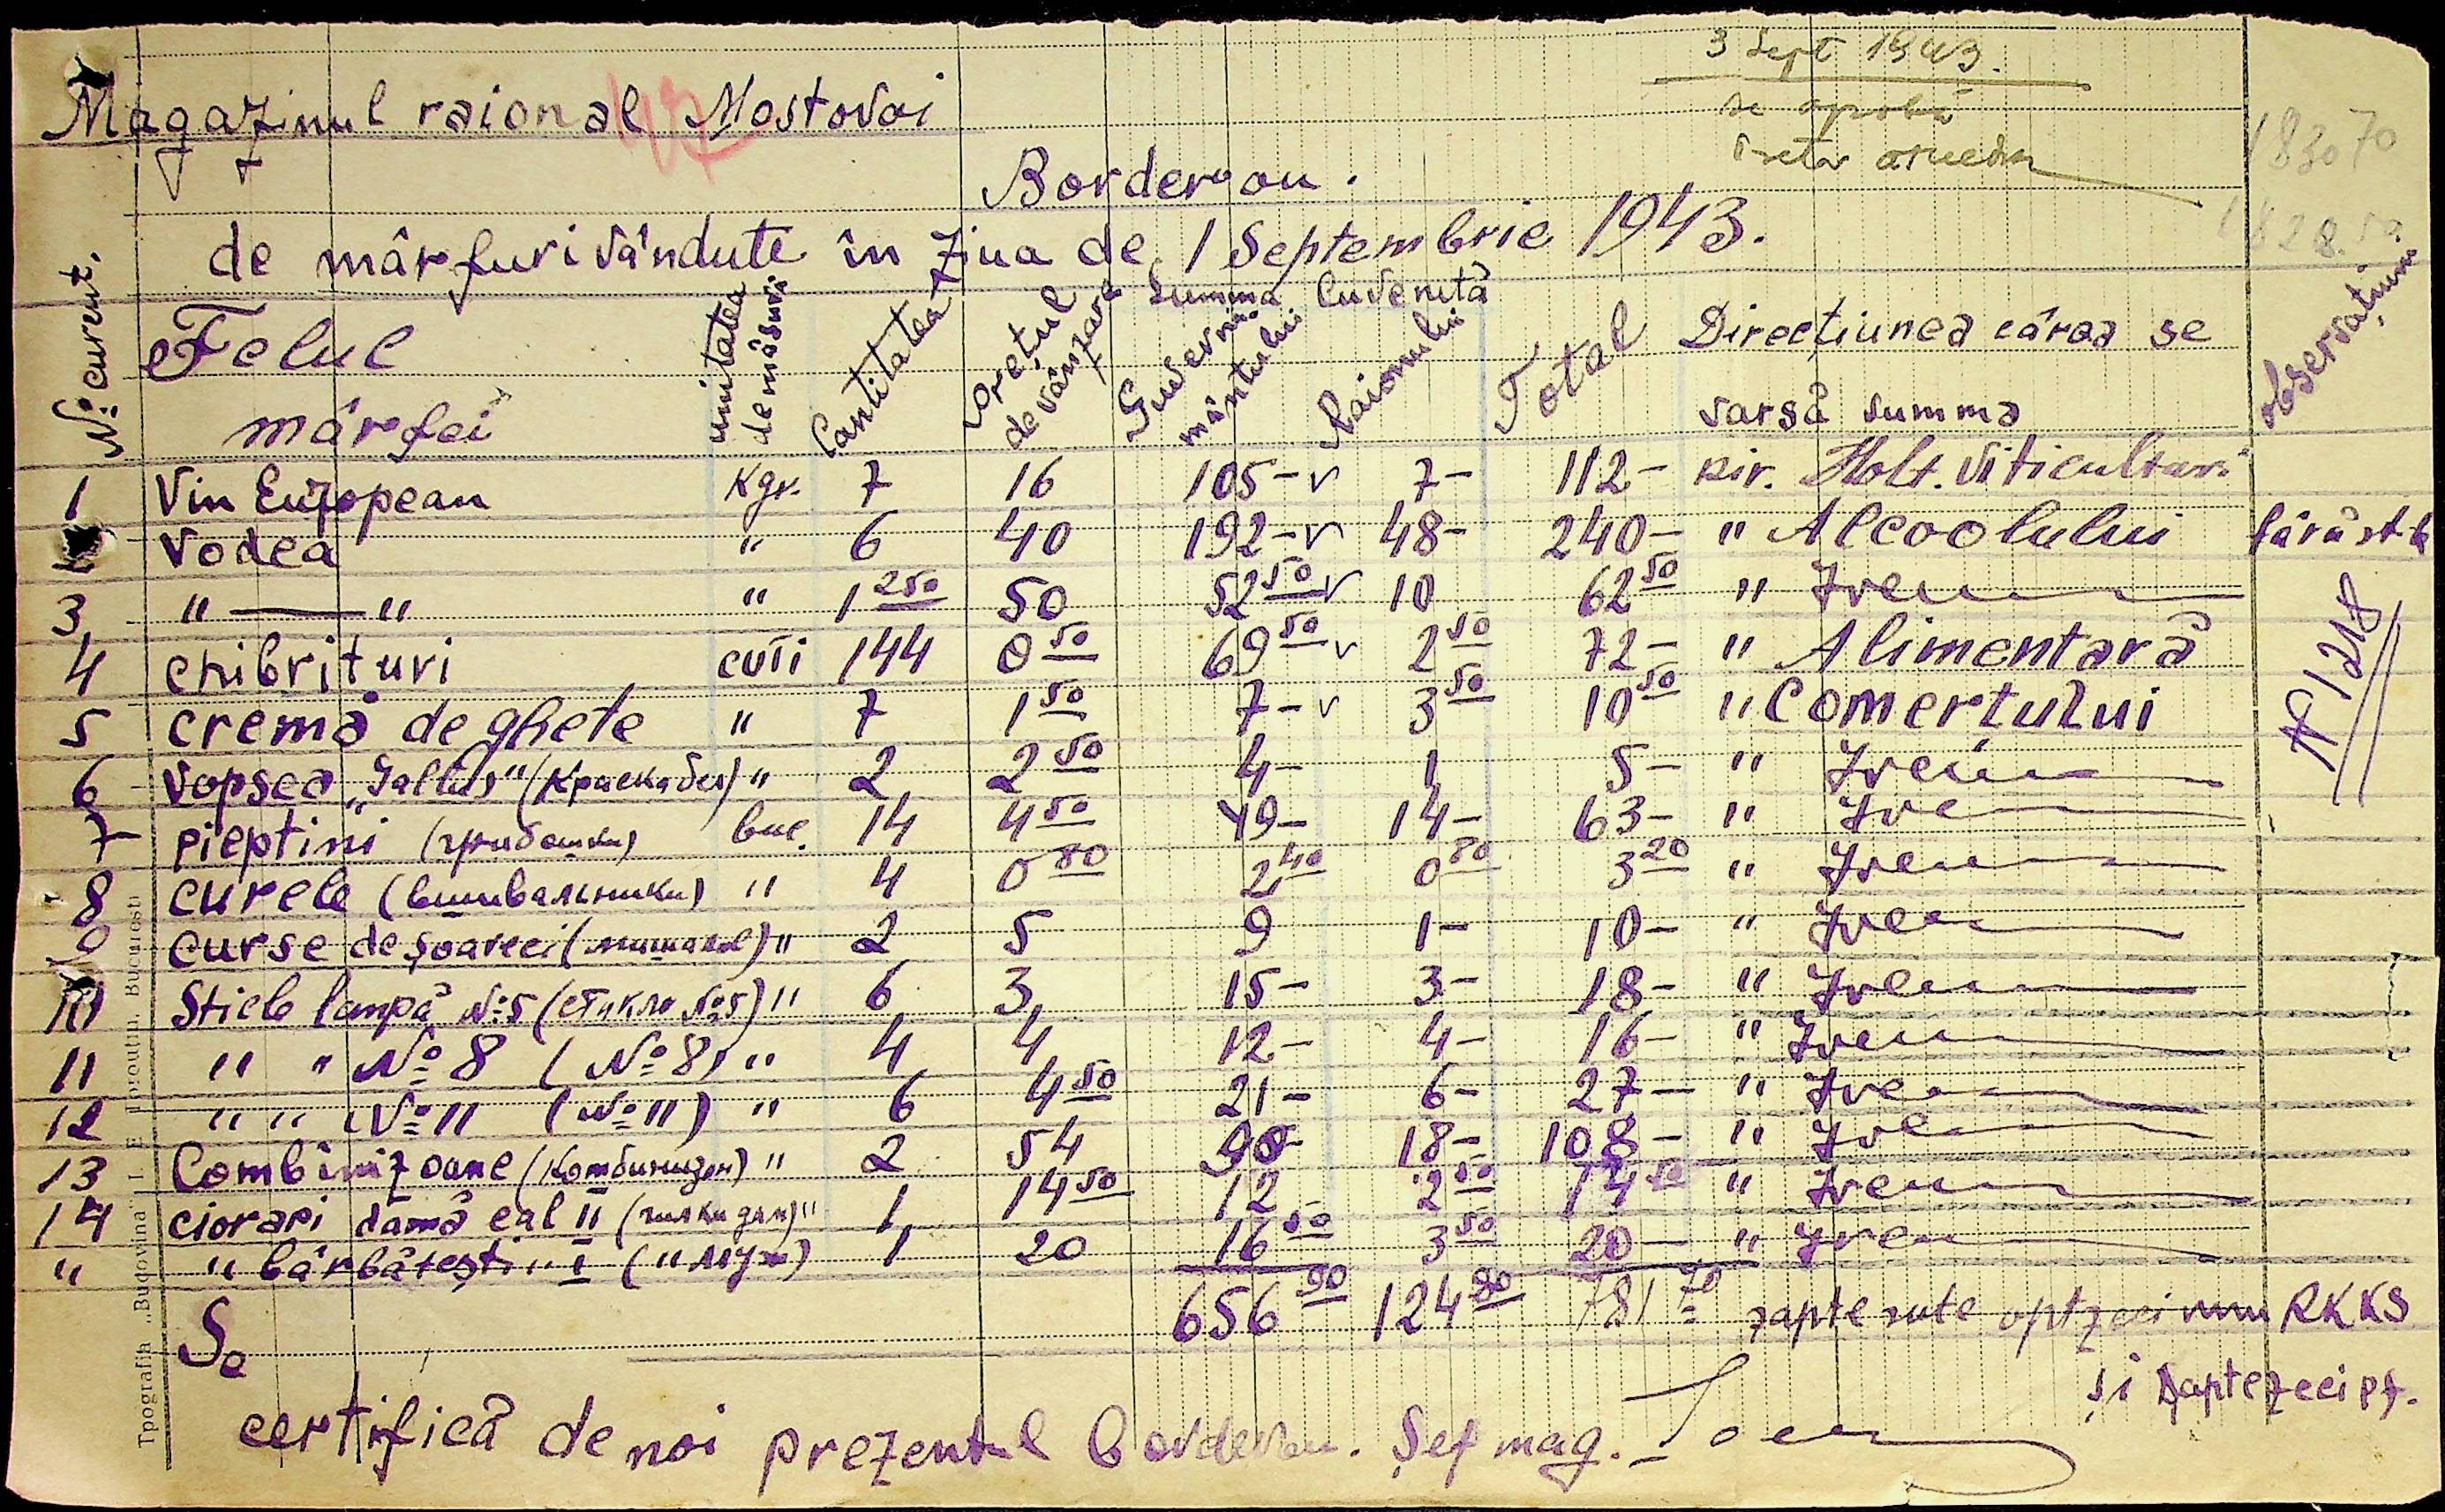 3 Sept 1943.
se aprobă
Magazinul raional Mostovoi
18370
Borderou.
de mărfuri vândute în ziua de 1 Septembrie 1943.
№ curent. Felul mărfei unitatea de măsură Cantitatea prețul de vânzare Summa Cuvenită Guvernământului Raionului Total Direcțiunea cărea se varsă summa observațiuni
1 Vin European Kgr. 7 16 105- v 7- 112- Dir. Viticulturi
Vodca " 6 40 192- v 48- 240- " Alcoolului fără st.
3 " — " " 1 250 50 52 50 v 10 62 50 " Idem
4 chibrituri cutii 144 0 50 69 50 v 2 50 72- " Alimentară № 1218
5 cremă de ghete " 7 1 50 7- v 3 50 10 50 " Comertului
6 vopsea „Gallus" " 2 2 50 4- 1 5- " Idem
7 pieptini (гребешки) buc. 14 4 50 49- 14- 63- " Idem
8 curele " 4 0 80 2 40 0 80 3 20 " Idem
9 curse de șoareci " 2 5 9 1- 10- " Idem
10 Sticle lampă №5 (стикло №5) " 6 3 15- 3- 18- " Idem
11 " " №8 (№8) " 4 4 12- 4- 16- " Idem
12 " " №11 (№11) " 6 4 50 21- 6- 27- " Idem
13 Combinizoane (Комбинизон) " 2 54 90- 18- 108- " Idem
14 ciorapi damă cal II " 1 14 50 12 2 50 14 50 " Idem
" " bărbătești " I (" муж) 1 20 16 50 3 50 20- " Idem
656 90 124 80 781 70 șapte sute optzeci unu RKKS
și șaptezeci pf.
Se
certifică de noi prezentul borderou. Șef mag.
Tpografia „Bucovina" I. E. Toroutiu. Bucuresti